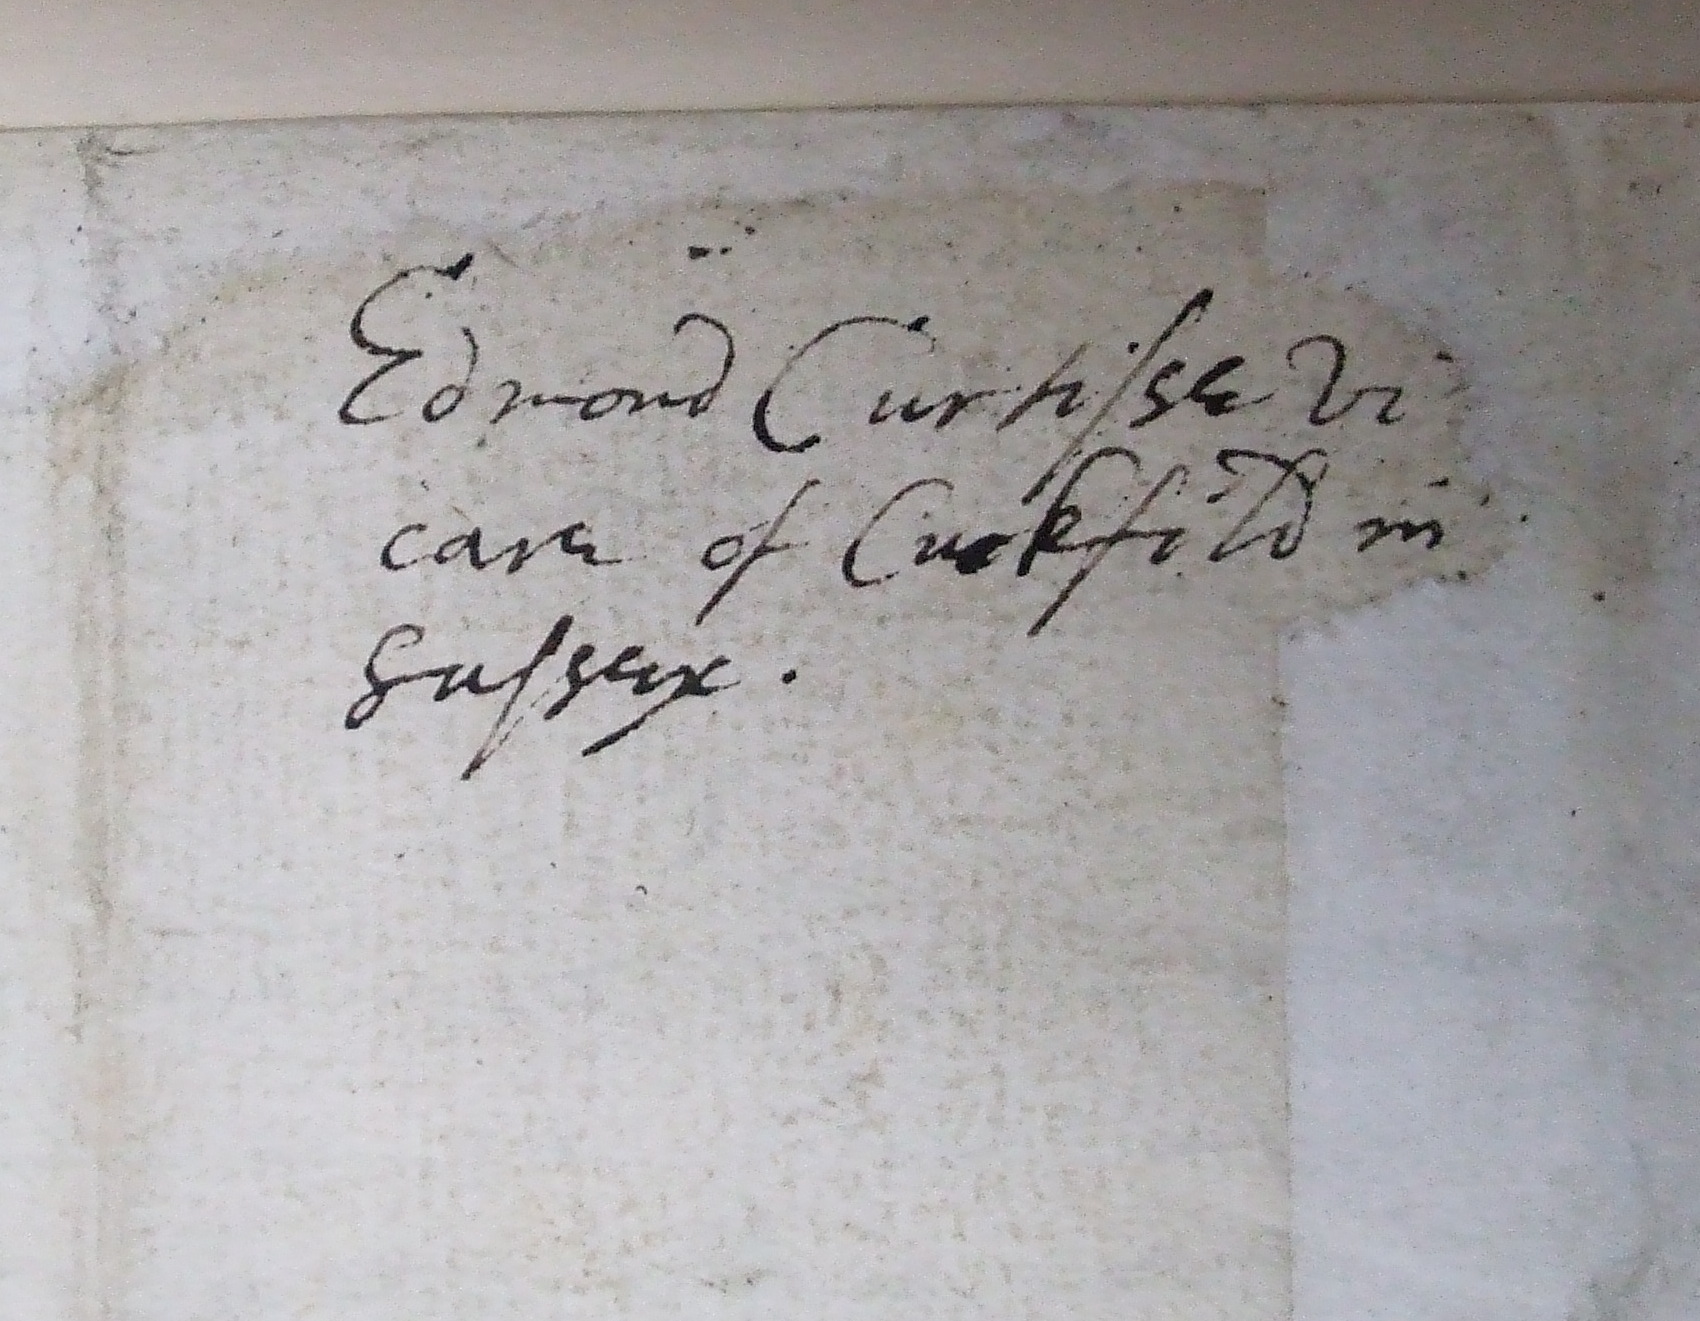 Edmond Curtisse Vi
care of Cuckfild in
Sussex.